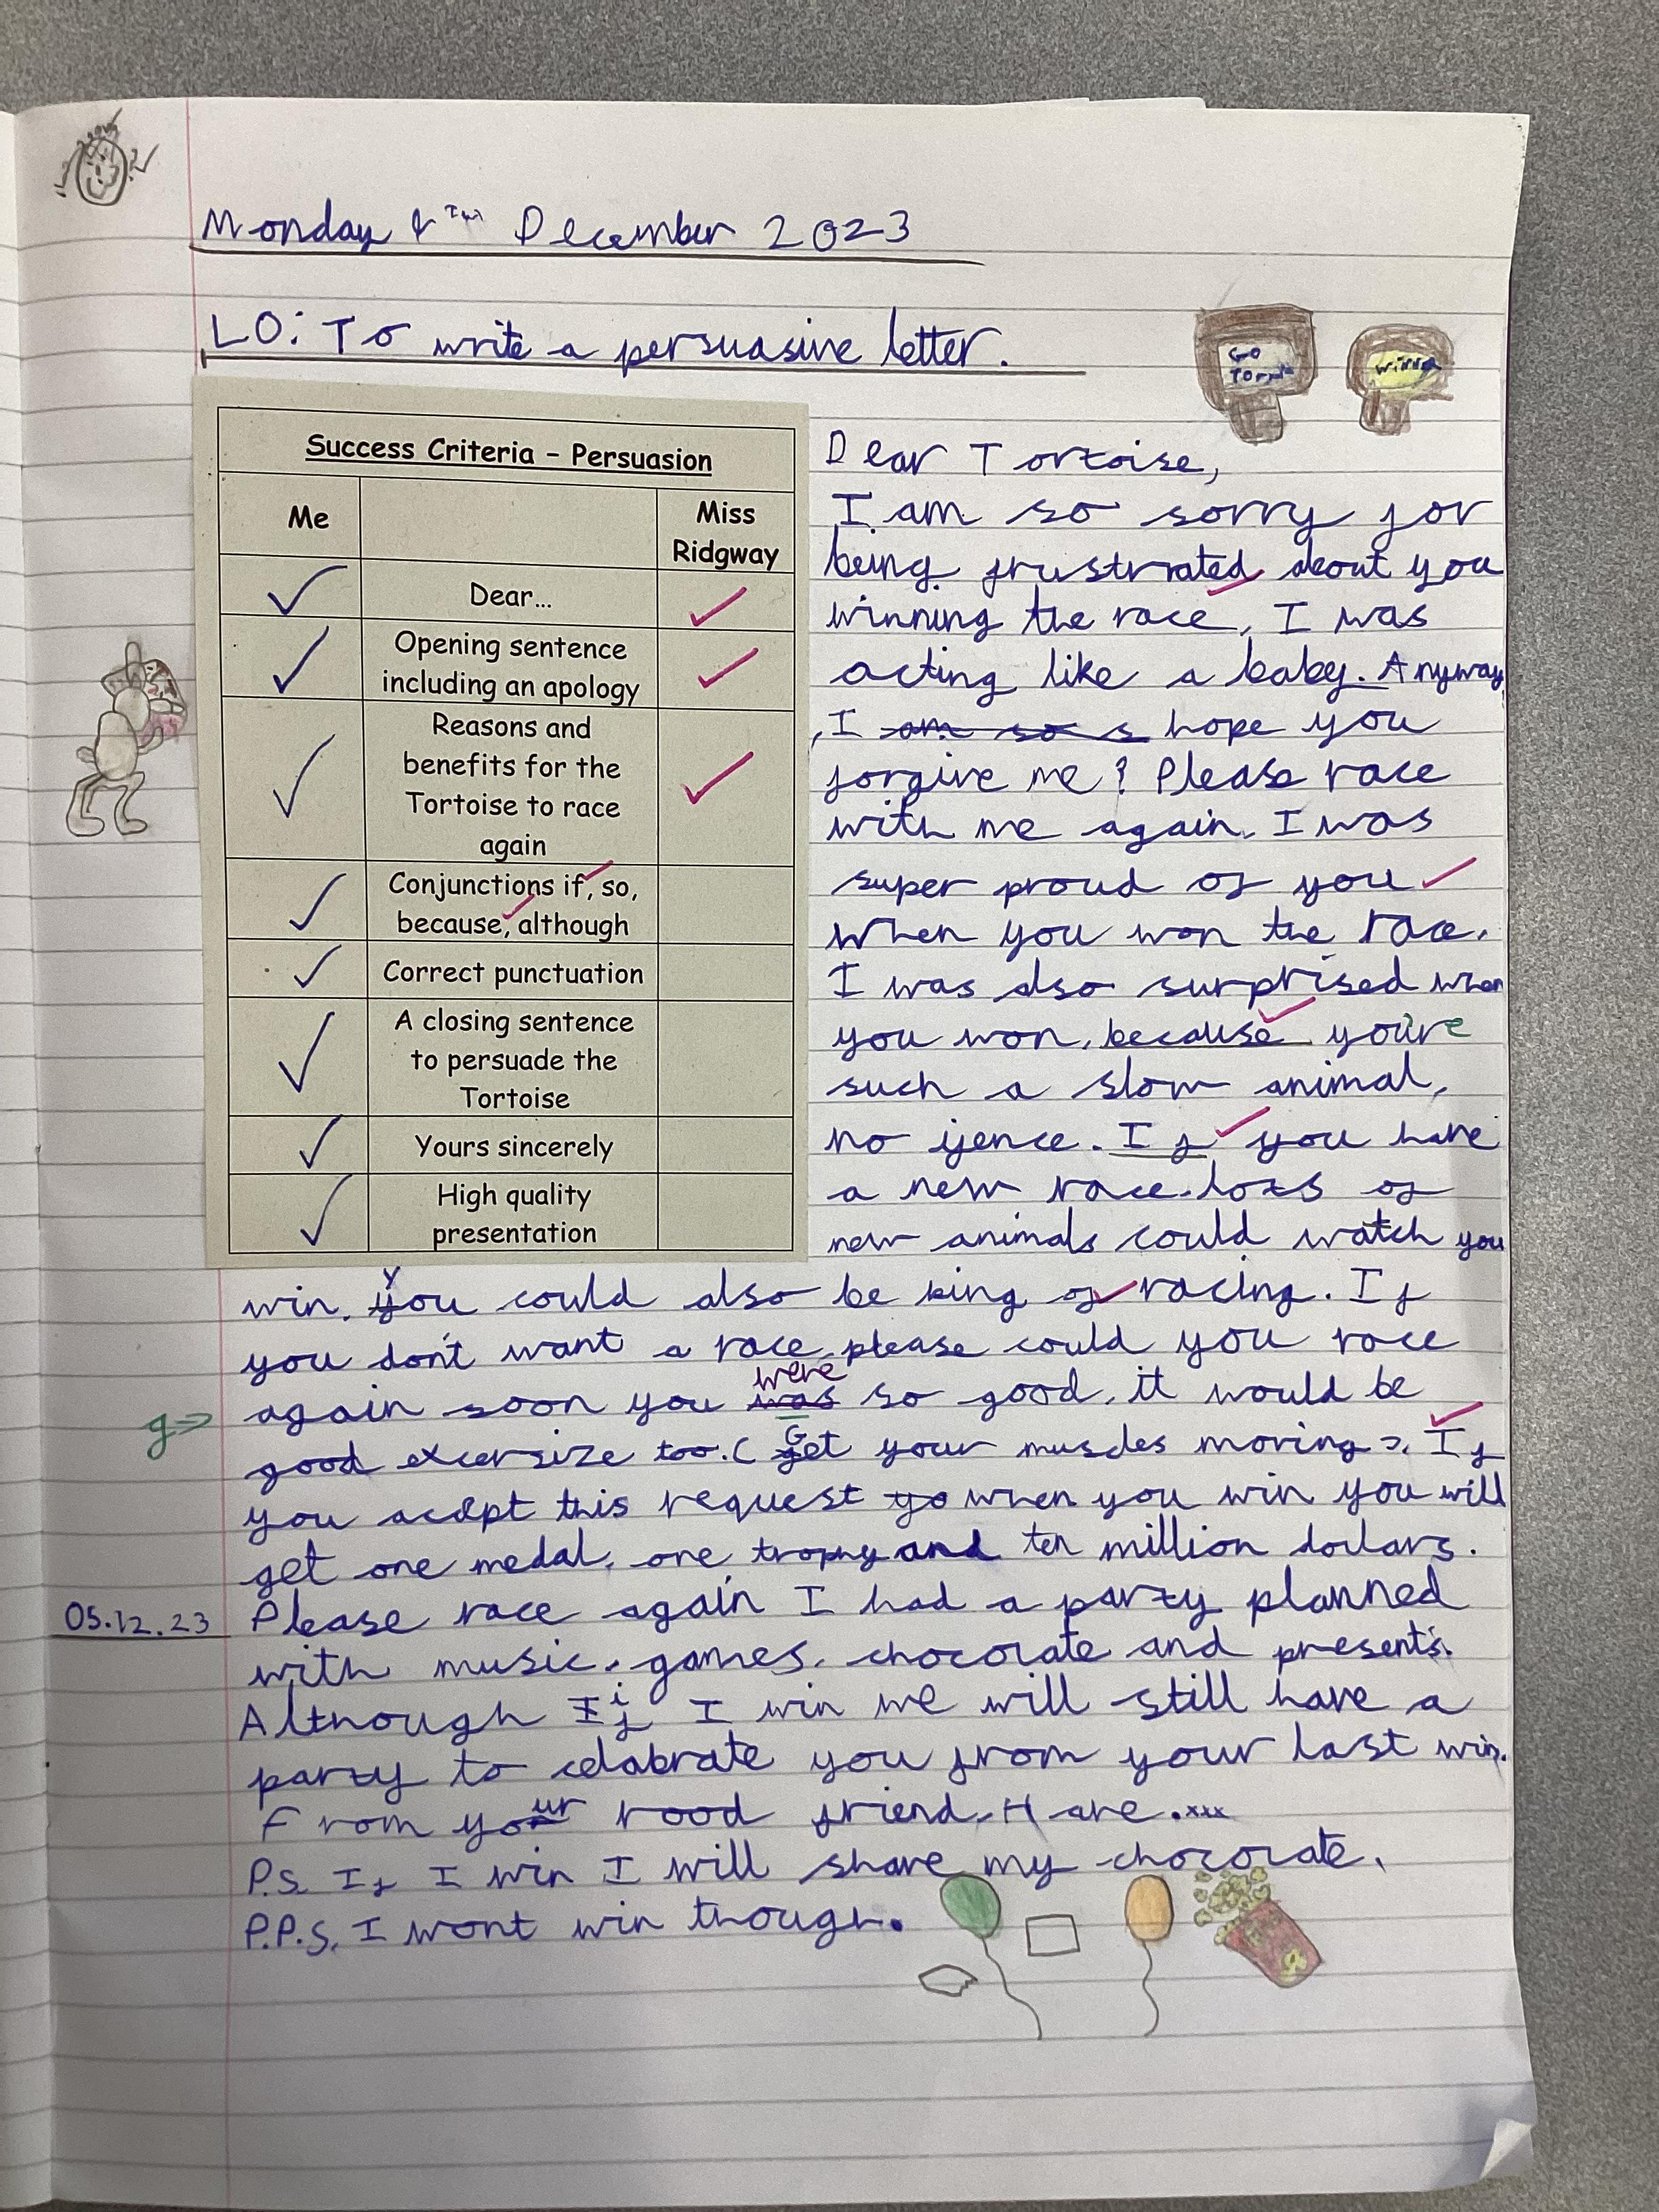 Monday 4th December 2023
LO: To write a persuasive letter.
GO
winner
Success Criteria – Persuasion
Me
Miss
Ridgway
Dear...
Opening sentence
including an apology
Reasons and
benefits for the
Tortoise to race
again
Conjunctions if, so,
because, although
Correct punctuation
A closing sentence
to persuade the
Tortoise
Yours sincerely
High quality
presentation
Dear Tortoise,
I am so sorry for
being frustrated about you
winning the race, I was
acting like a baby. Anyway
, I am so s hope you
forgive me? Please race
with me again, I was
super proud of you
when you won the race.
I was also surprised when
you won, because you're
such a slow animal,
no ofence. If you have
a new race, lots of
new animals could watch you
win. You could also be king of racing. If
you don't want a race, please could you race
again soon you was were so good, it would be
g good excersize too. (Get your muscles moving). If
you acept this request yo when you win you will
get one medal, one trophy and ten million dollars.
05.12.23 Please race again, I had a party planned
with music, games, chocolate and presents.
Although If if I win we will still have a
party to celabrate you from your last win.
From your good friend, Hare.xxx
P.s. If I win I will share my chocolate.
P.P.s. I wont win though.